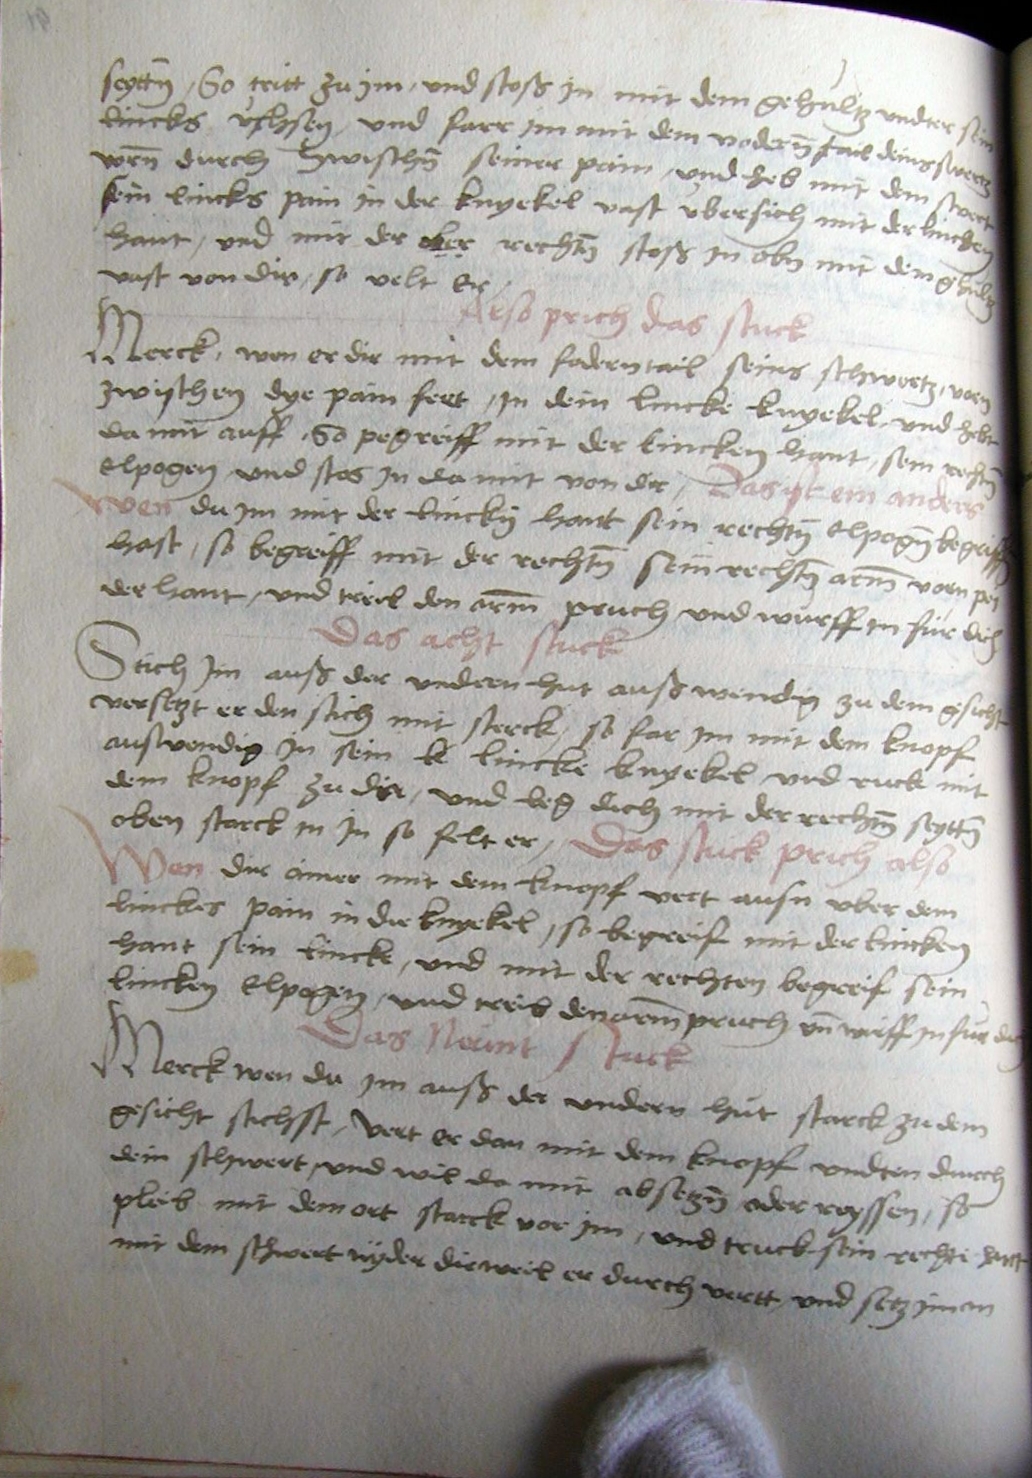 seyttñ, So tritt zu jm, und stoß jn mit dem gehultz undter sein
lincks vchsen, und farr im mit dem vodern tail deins swertz
vorñ durch zwischñ seiner pain, und heb mit dem swert
sein lincks pain in der knyekel vast vbersich mit der lincken
hant, und mit der rechtñ stoß in obn mit dem ghultz
vast von dir, so velt er,
Also prich das stuck
Merck, wen er dir mit dem fodern tail seins schwertz, vorn
zwischen dye pain fert, in dein lincke knyekel, und hebt
da mit auff, So pegreiff mit der lincken hant, sein rechtñ
elpogen und stos in da mit von dir, Das ist ein anders
Wen du im mit der linckñ hant sein rechtñ elpogñ begriffñ
hast, so begreiff mit der rechtñ sein rechtñ arm vorn pei
der hant, und treib den arm pruch und wurff in fur dich
Das acht stuck
Stich im auß der undern hut außwendig zu dem gesicht
versetzt er den stich mit sterck, so far im mit dem knopf
auswendig in sein lincke knyekel und ruck mit
dem knopf zu dir, und leg dich mit der rechtñ seyttñ
oben starck in in so felt er, Das stuck prich also
Wen dir ainer mit dem knopf vert ausn vber dem
linckes pain in die knyekel, so begreif mit der lincken
hant sein lincke, und mit der rechten begreif sein
lincken elpogen, und treib den arm pruch uñ wirff in fur dich
Das Neunt stuck
Merck wen du im auß der undern hut starck zu dem
gesicht stichst, Vert er dan mit dem knopf undten durch
dein schwert, und wil da mit absetzñ oder reyssen, so
pleib mit dem ort starck vor im, und truck sein rechte hant
mit dem schwert nyder dieweil er durch vertt und setz im an